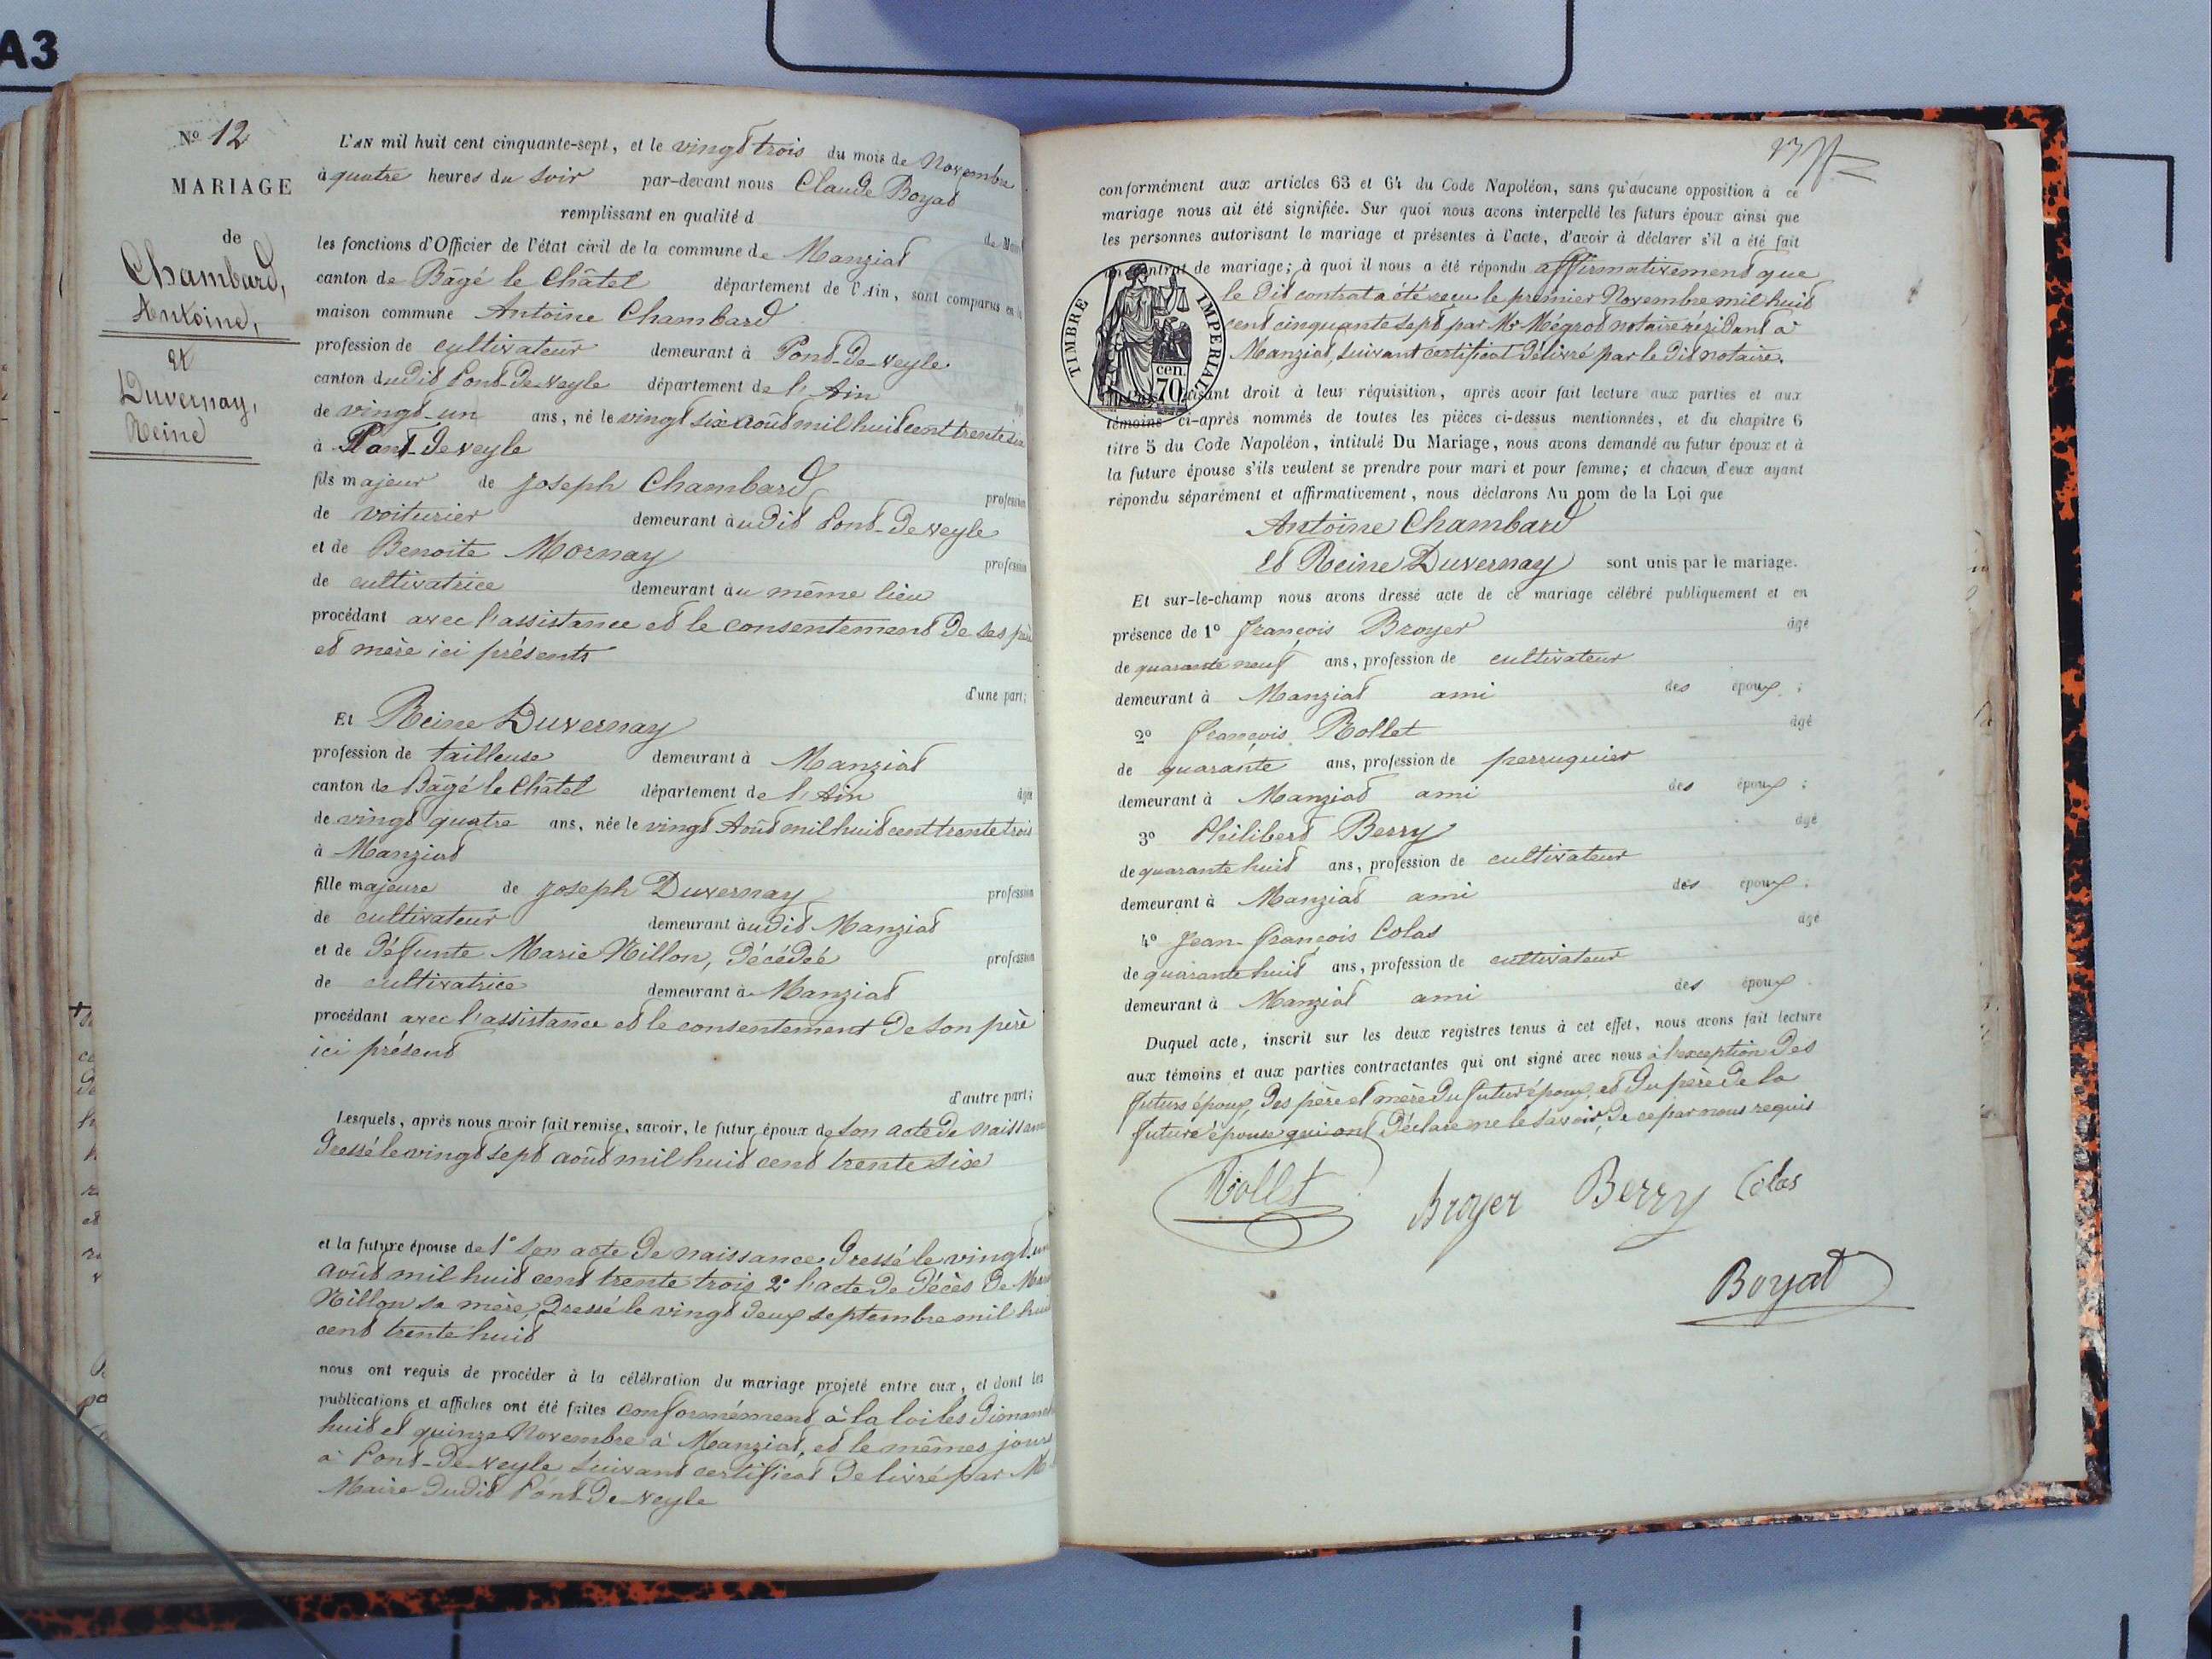 A3
N° 12
MARIAGE
de
Chambard,
Antoine,
et
Duvernay,
Reine
L'AN mil huit cent cinquante-sept, et le vingt trois du mois de Novembre
à quatre heures du soir par-devant nous Claude Boyat
remplissant en qualité d
les fonctions d'Officier de l'état civil de la commune de Manziat
canton de Bâgé le Châtel département de l'Ain, sont comparus en la
maison commune Antoine Chambard
profession de cultivateur demeurant à Pont-de-Veyle
canton dudit Pont-de-Veyle département de l'Ain
de vingt-un ans, né le vingt six août mil huit cent trente six
à Pont-de-Veyle
fils majeur de Joseph Chambard profession
de voiturier demeurant audit Pont-de-Veyle
et de Benoite Mornay profession
de cultivatrice demeurant au même lieu
procédant avec l'assistance et le consentement de ses père
et mère ici présents
d'une part;
Et Reine Duvernay
profession de tailleuse demeurant à Manziat
canton de Bâgé le Châtel département de l'Ain âgée
de vingt quatre ans, née le vingt Août mil huit cent trente trois
à Manziat
fille majeure de Joseph Duvernay profession
de cultivateur demeurant audit Manziat
et de défunte Marie Nillon, décédée profession
de cultivatrice demeurant à Manziat
procédant avec l'assistance et le consentement de son père
ici présent
d'autre part;
Lesquels, après nous avoir fait remise, savoir, le futur époux de son acte de naissance
dressé le vingt sept août mil huit cent trente six
et la future épouse de 1° son acte de naissance dressé le vingt un
août mil huit cent trente trois 2° l'acte de décès de Marie
Nillon sa mère, dressé le vingt deux septembre mil huit
cent trente huit
nous ont requis de procéder à la célébration du mariage projeté entre eux, et dont les
publications et affiches ont été faites conformément à la loi les dimanches
huit et quinze Novembre à Manziat, et le mêmes jours
à Pont-de-Veyle suivant certificat délivré par M
Maire dudit Pont-de-Veyle
conformément aux articles 63 et 64 du Code Napoléon, sans qu'aucune opposition à ce
mariage nous ait été signifiée. Sur quoi nous avons interpellé les futurs époux ainsi que
les personnes autorisant le mariage et présentes à l'acte, d'avoir à déclarer s'il a été fait
un contrat de mariage; à quoi il nous a été répondu affirmativement que
le dit contrat a été reçu le premier Novembre mil huit
cent cinquante sept par Mr Mégrod notaire résidant à
Manziat, suivant certificat délivré par le dit notaire.
TIMBRE IMPERIAL
cen.
70
faisant droit à leur réquisition, après avoir fait lecture aux parties et aux
témoins ci-après nommés de toutes les pièces ci-dessus mentionnées, et du chapitre 6
titre 5 du Code Napoléon, intitulé Du Mariage, nous avons demandé au futur époux et à
la future épouse s'ils veulent se prendre pour mari et pour femme; et chacun d'eux ayant
répondu séparément et affirmativement, nous déclarons Au nom de la Loi que
Antoine Chambard
et Reine Duvernay sont unis par le mariage.
Et sur-le-champ nous avons dressé acte de ce mariage célébré publiquement et en
présence de 1° François Broyer âgé
de quarante neuf ans, profession de cultivateur
demeurant à Manziat ami des époux;
2° François Rollet âgé
de quarante ans, profession de perruquier
demeurant à Manziat ami des époux;
3° Philibert Berry âgé
de quarante huit ans, profession de cultivateur
demeurant à Manziat ami des époux;
4° Jean-François Colas âgé
de quarante huit ans, profession de cultivateur
demeurant à Manziat ami des époux.
Duquel acte, inscrit sur les deux registres tenus à cet effet, nous avons fait lecture
aux témoins et aux parties contractantes qui ont signé avec nous à l'exception des
futurs époux, des père et mère du futur époux, et du père de la
future épouse qui ont déclaré ne le savoir, de ce par nous requis
Rollet Broyer Berry Colas
Boyat